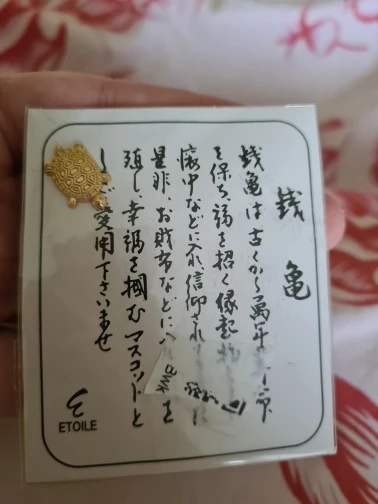 銭亀
銭亀は古くから萬年の
を保ち、福を招く縁起物
懐中などに入れ信仰され
是非、お財布などに入れ を
殖し、幸福を掴むマスコットと
ご愛用下さいませ
ETOILE